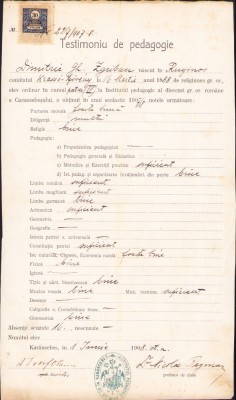 Testimoniu de pedagogie
Dimitrie Gh. născut în Ruginos
comitatul Krassó-Szörény la Martie anul 1888 de religiunea gr. or.
elev ordinar în cursul al III Institutul pedagogic al diecesei gr. or. române
a Caransebeșului, a obținut în anul școlastic 1907/8 notele următoare:
Purtarea morală foarte bună
Diligența multă
Religia bine
Pedagogia:
a) Propedeutica pedagogică —
b) Pedagogia generală și Didactica —
c) Metodica și Exerciții practice suficient
d) Ist. pedag. și repetițiunea din parte bine
Limba română suficient
Limba maghiară suficient
Limba germană bine
Aritmetica suficient
Geometria —
Geografia —
Istoria patriei s. universală —
Constituția patriei suficient
Ist. naturală; Chemia, Economia rurală foarte bine
Fizica bine
Igiena —
Tipic și cânt. bisericească bine
Muzica vocală bine Muz. instrum. suficient
Desemn —
Caligrafia s. Contabilitate —
Gimnastica bine
Absențe scuzate 10, nescuzate —
Numărul elev.
Karánsebes, în 1 Iuniu 1908 st. v.
Dr. Nicolae